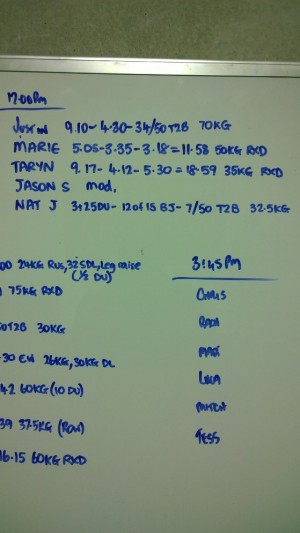 7.00pm
Justin 9.10-4.30-34/50 T2B 70KG
MARIE 5.05-3.35-3.18=11.58 50KG RXD
TARYN 9.17-4.12-5.30=18.59 35KG RXD
JASON S mod,
NAT J 3+25DU-12 of 15 BJ-7/50 T2B 32.5KG
00 24KG Rus, 32.5DL, Leg raise
(1/2 DU)
75KG RXD
50T2B 30KG
.30 26KG, 30KG DL
42 60KG (10 DU)
39 37.5KG (Row)
16.15 60KG RXD
3:45pm
CHRIS
MAX
LUKA
MITCH
JESS